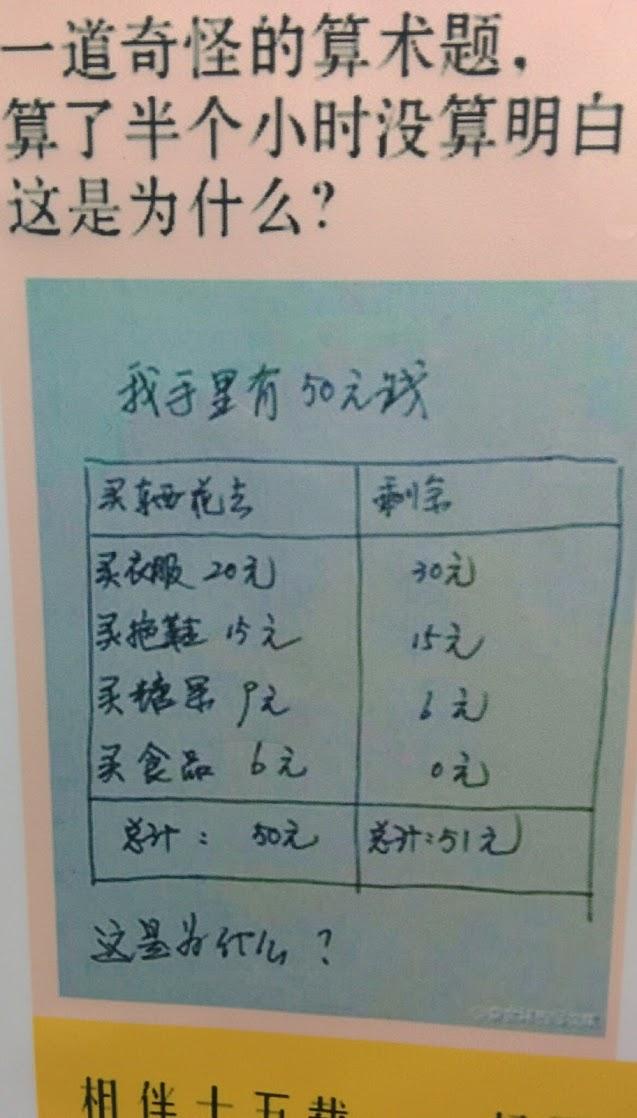 一道奇怪的算术题，
算了半个小时没算明白
这是为什么？
我手里有50元钱
买东西花去 剩余
买衣服 20元 30元
买拖鞋 15元 15元
买糖果 9元 6元
买食品 6元 0元
总计： 50元 总计：51元
这是为什么？
相伴十五载